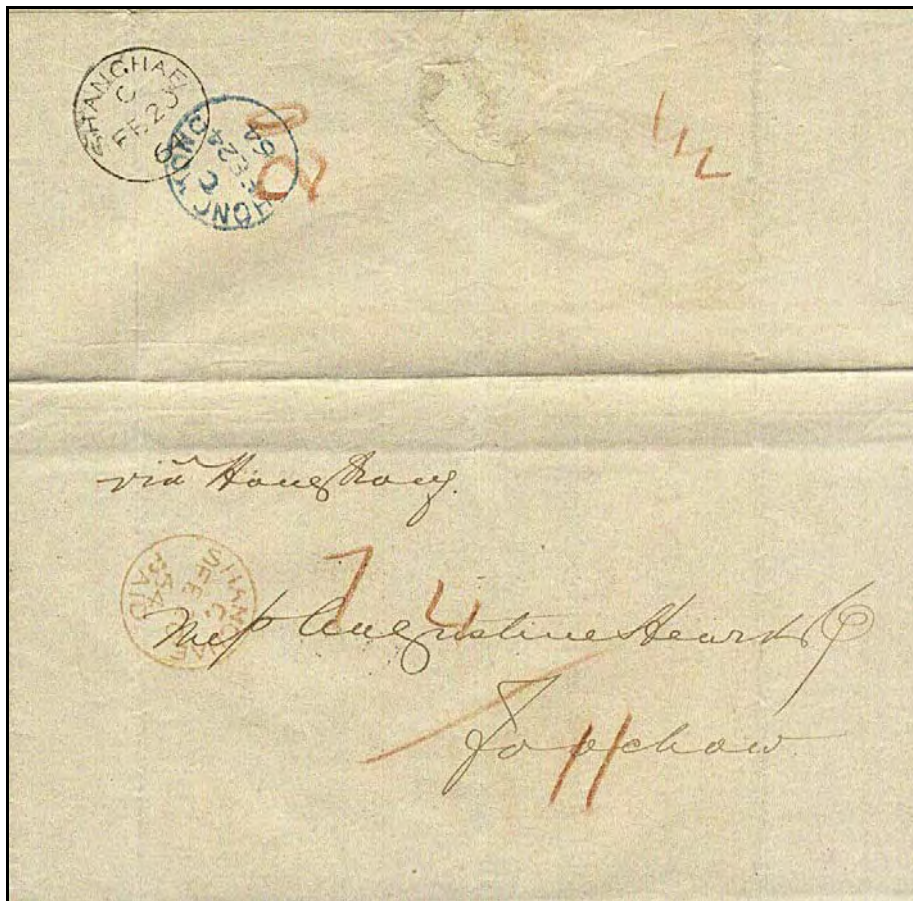 SHANGHAE
C
FE 20
64
HONG KONG
C
FE 24
64
via Hong Kong.
SHANGHAE
C
FE
64
PAID
7 4
Mess Augustine Heard & Co
Foochow
11